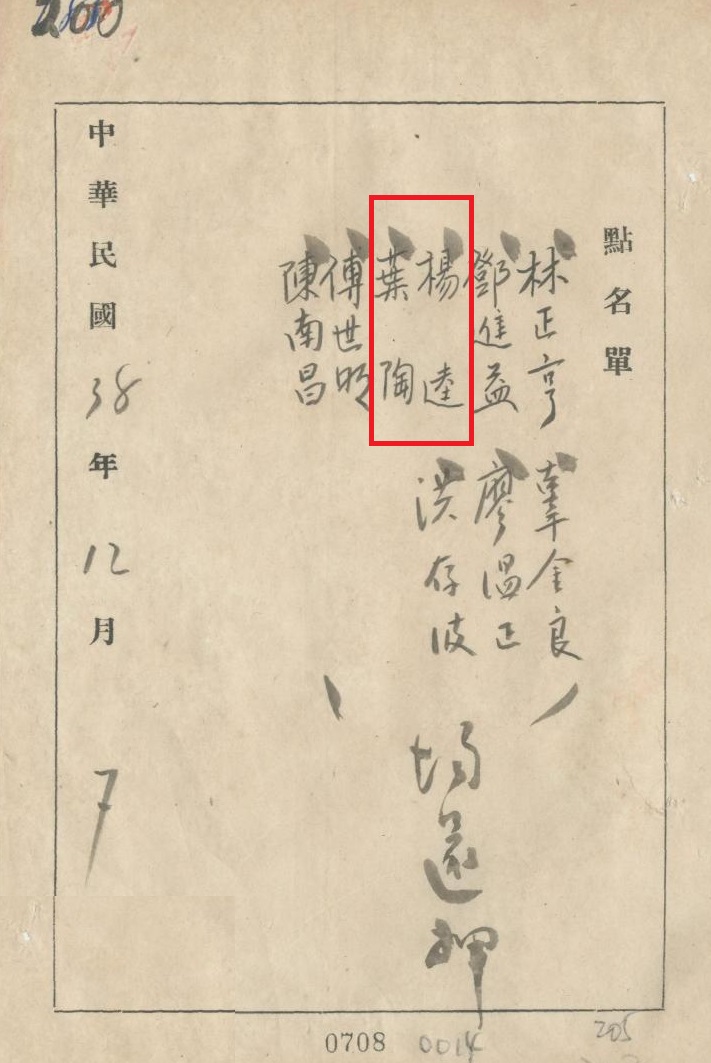 點名單
林正亨
鄧進益
楊逵
葉陶
傅世明
陳南昌
辜金良
廖温正
洪存
均還押
中華民國38年12月7
0708
0014
205
200